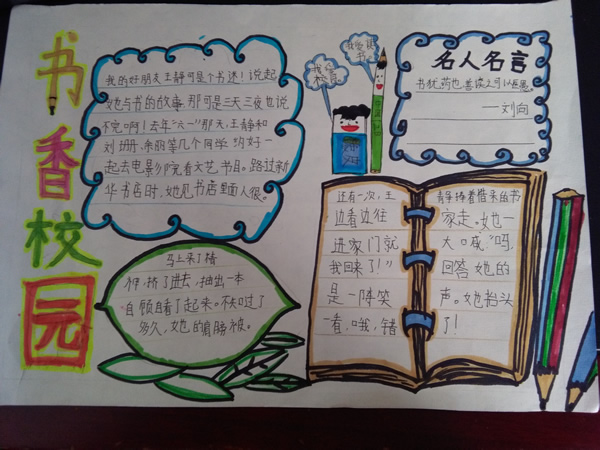 书香校园
我的好朋友王静可是个书迷！说起
她与书的故事，那可是三天三夜也说
不完啊！去年“六一”那天，王静和
刘珊、朱丽等几个同学约好一
起去电影院看文艺节目。路过新
华书店时，她见书店里面人很。
马上来了精
神，挤了进去，抽出一本
自顾自看了起来。不知过了
多久，她的肩膀被。
我爱看书
名人名言
书犹药也，善读之可以医愚。
——刘向
还有一次，王
边看边往
进家门就
我回来了！”
是一阵笑
一看，哦，错
静捧着借来的书
家走。她一
大口喊：“妈，
回答她的
声。她抬头
了！